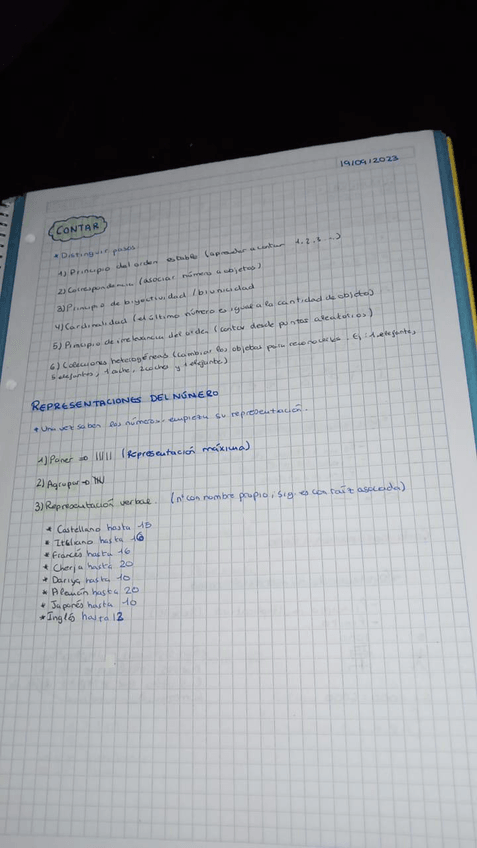 19/09/2023
CONTAR
* Distinguir pasos:
1) Principio del orden estable (aprender a contar 1, 2, 3...)
2) Correspondencia (asociar número a objetos)
3) Principio de biyectividad / biunicidad
4) Cardinalidad (el último número es igual a la cantidad de objeto)
5) Principio de irrelevancia del orden (contar desde puntos aleatorios)
6) Colecciones heterogéneas (cambiar los objetos para reconocerlos. Ej: 1 elefante,
5 elefantes, 1 coche, 2 coches y 1 elefante)
REPRESENTACIONES DEL NÚMERO
* Una vez saben los números empieza su representación.
1) Poner => (Representación máxima)
2) Agrupar =>
3) Representación verbal. (nº con nombre propio, sig. es con raíz asociada)
* Castellano hasta 15
* Italiano hasta 16
* Francés hasta 16
* hasta 20
* Dariya hasta 10
* Alemán hasta 20
* Japonés hasta 10
* Inglés hasta 12